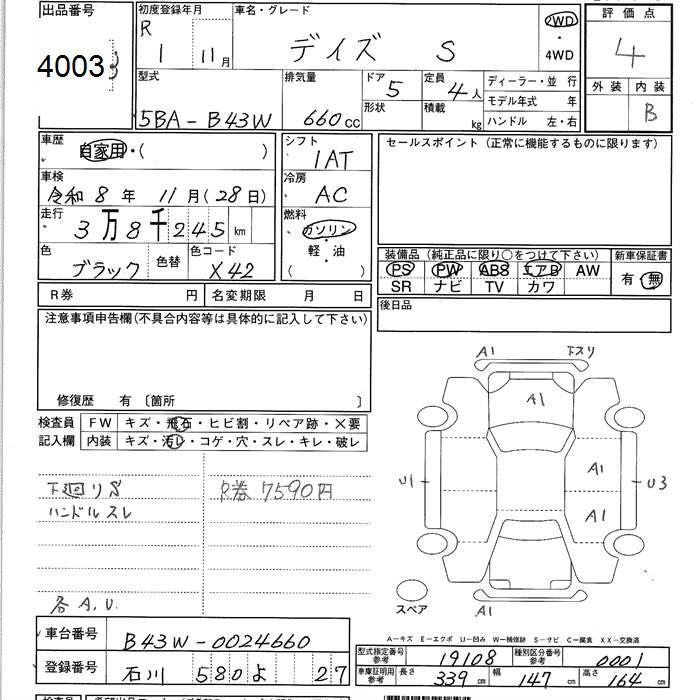 出品番号 初度登録年月 車名・グレード 評価点
4003 R 1 11月 デイズ S 2WD ・ 4WD 4
型式 排気量 ドア 5 定員 4人 ディーラー・並 行 外装 内装
5BA-B43W 660cc 形状 積載 kg モデル年式 年 B
ハンドル 左・右
車歴 自家用・( ) シフト 1AT セールスポイント (正常に機能するものに限ります)
車検 令和 8 年 11 月(28日) 冷房 AC
走行 3万8千245km 燃料 ガソリン・軽・油 ( )
色 ブラック 色替 色コード X42
装備品(純正品に限り○をつけて下さい) 新車保証書
PS PW ABS エアB AW 有 無
SR ナビ TV カワ
R券 円 名変期限 月 日 後日品
注意事項申告欄(不具合内容等は具体的に記入して下さい)
修復歴 有 〔箇所 〕
検査員 FW キズ・飛石・ヒビ割・リペア跡・×要
記入欄 内装 キズ・汚レ・コゲ・穴・スレ・キレ・破レ
下廻りS R券 7590円
ハンドルスレ
各A,U.
A1 下スリ
A1
A1
U1 U3
A1
スペア A1
A-キズ E-エクボ U-凹み W-補修跡 S-サビ C-腐食 XX-交換済
車台番号 B43W-0024660
型式指定番号 参考 19108 種別区分番号 参考 0001
登録番号 石川 580 よ 27
車庫証明用 参考 長さ 339 cm 幅 147 cm 高さ 164 cm